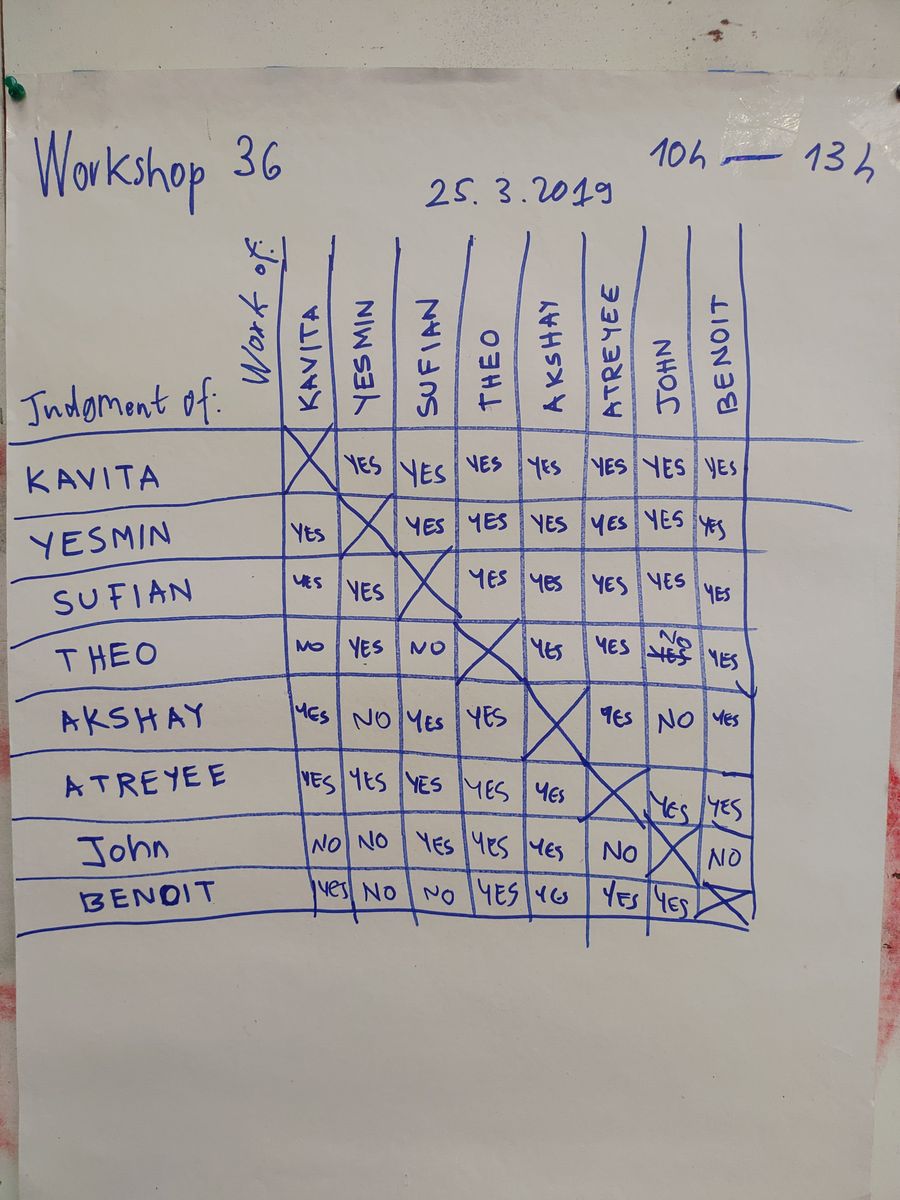 Workshop 36
10h — 13h
25.3.2019
Judgment of: Work of: KAVITA YESMIN SUFIAN THEO AKSHAY ATREYEE JOHN BENOIT
KAVITA YES YES YES YES YES YES YES
YESMIN YES YES YES YES YES YES YES
SUFIAN YES YES YES YES YES YES YES
THEO NO YES NO YES YES NO YES
AKSHAY YES NO YES YES YES NO YES
ATREYEE YES YES YES YES YES YES YES
John NO NO YES YES YES NO NO
BENOIT YES NO NO YES YES YES YES